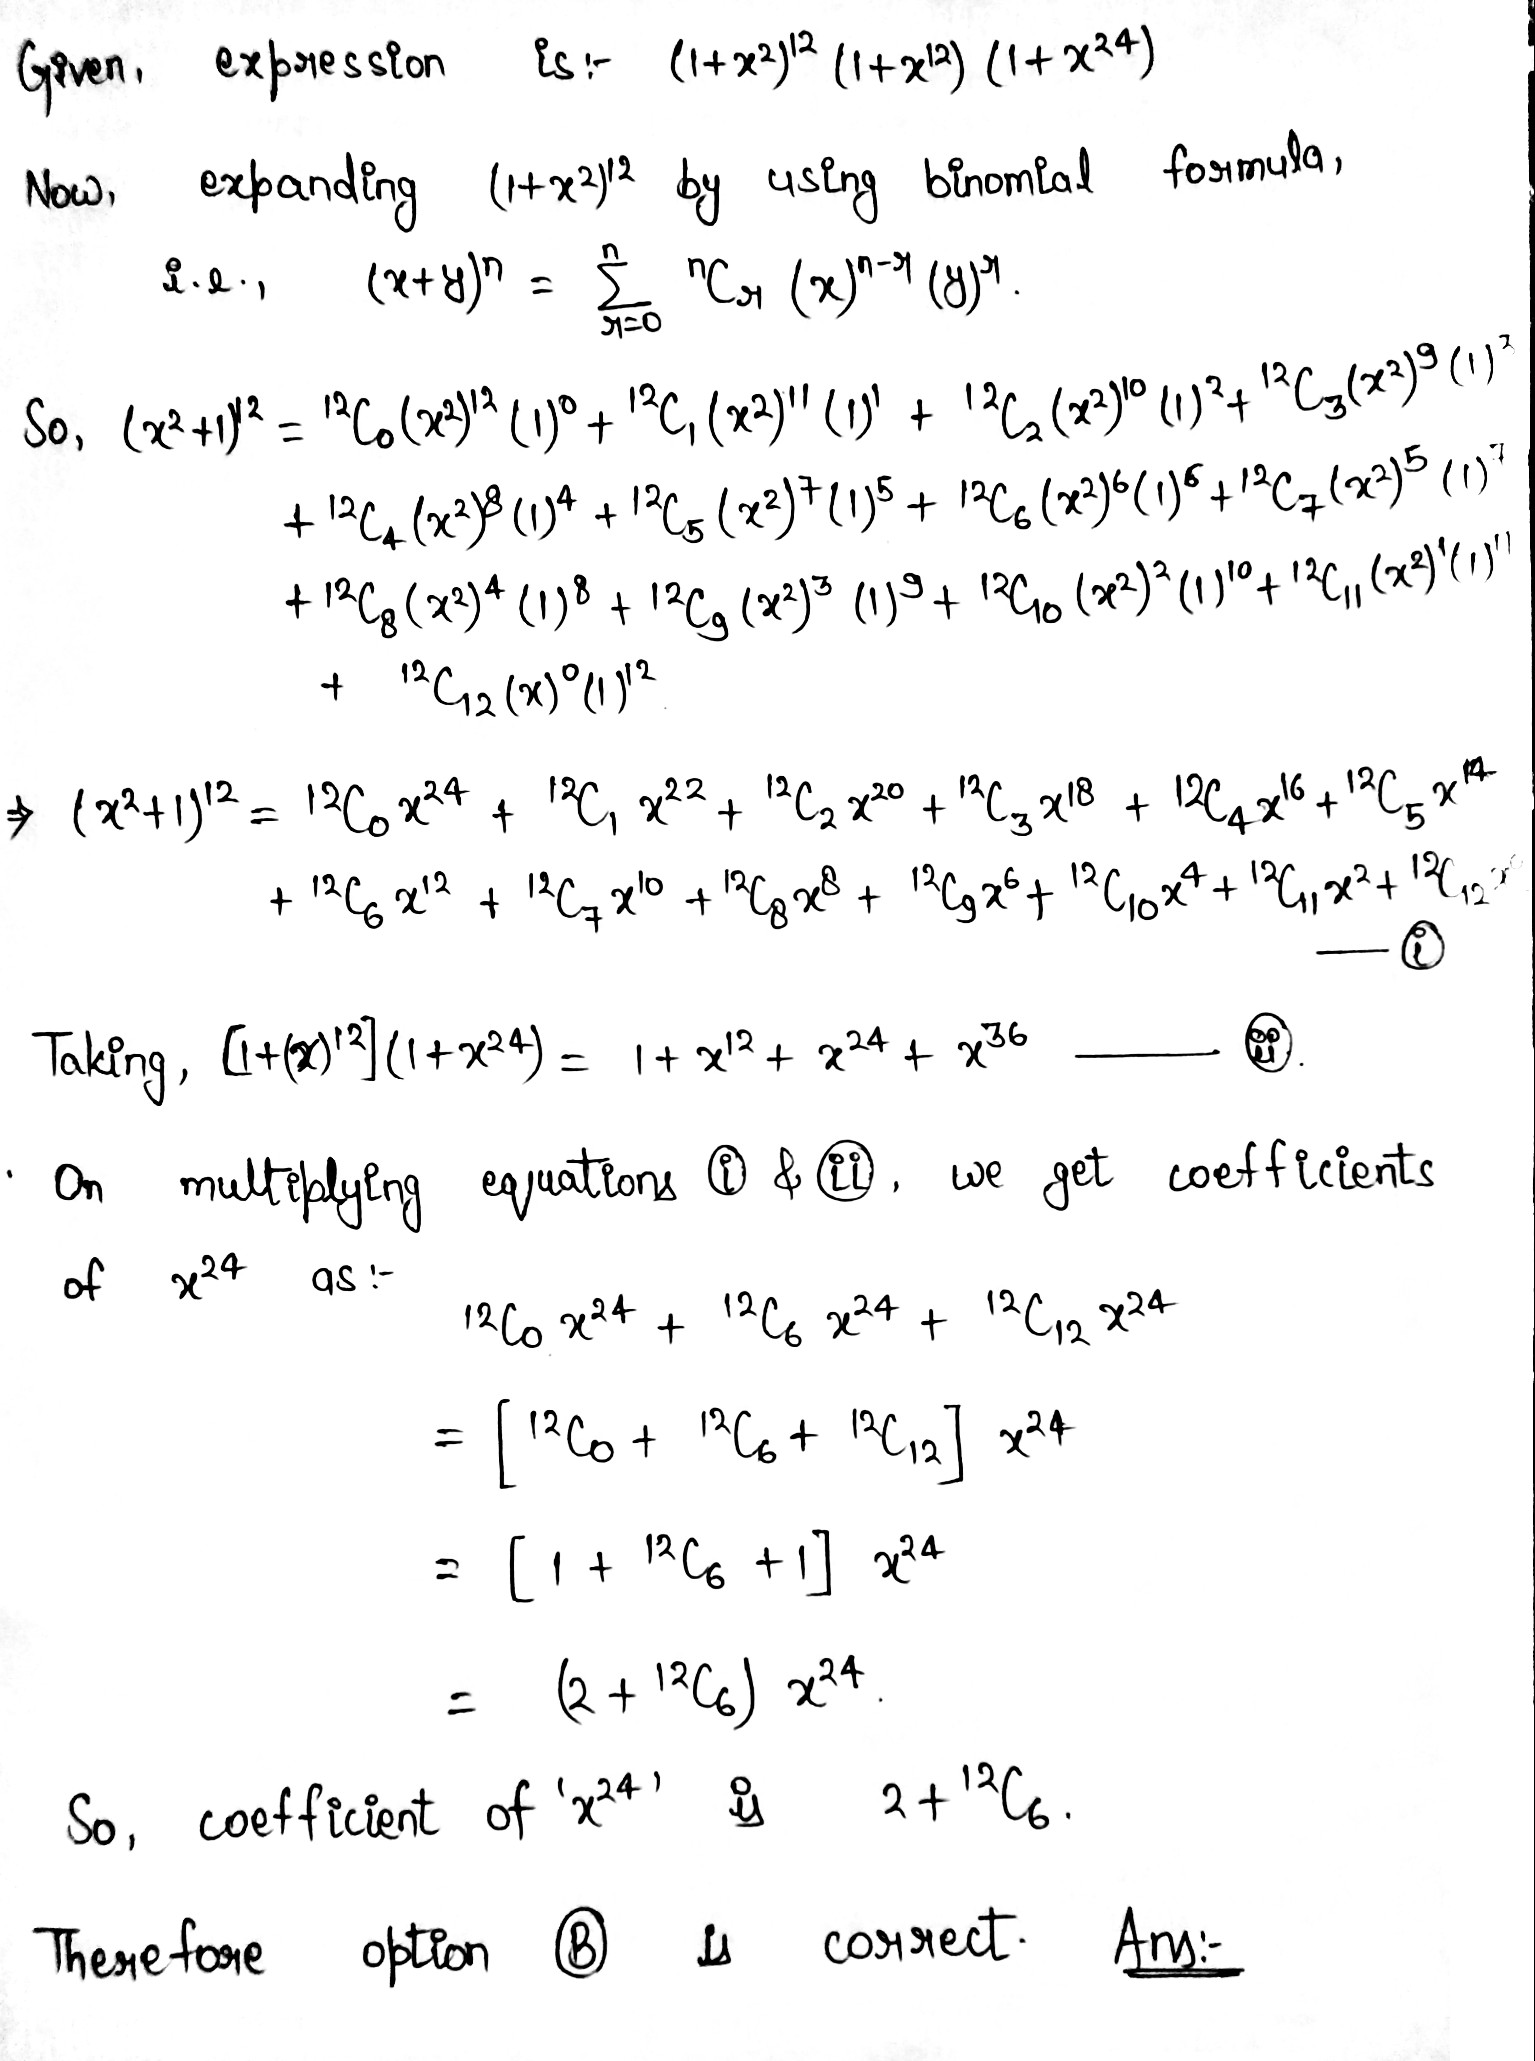 Given, expression is:- (1+x²)¹² (1+x¹²) (1+x²⁴)
Now, expanding (1+x²)¹² by using binomial formula,
i.e., (x+y)ⁿ = ⁿΣᵣ₌₀ ⁿCᵣ (x)ⁿ⁻ʳ (y)ʳ.
So, (x²+1)¹² = ¹²C₀(x²)¹² (1)⁰ + ¹²C₁(x²)¹¹ (1)¹ + ¹²C₂(x²)¹⁰ (1)² + ¹²C₃(x²)⁹ (1)³
+ ¹²C₄(x²)⁸ (1)⁴ + ¹²C₅(x²)⁷ (1)⁵ + ¹²C₆(x²)⁶ (1)⁶ + ¹²C₇(x²)⁵ (1)⁷
+ ¹²C₈(x²)⁴ (1)⁸ + ¹²C₉(x²)³ (1)⁹ + ¹²C₁₀(x²)² (1)¹⁰ + ¹²C₁₁(x²)¹ (1)¹¹
+ ¹²C₁₂(x)⁰(1)¹²
⇒ (x²+1)¹² = ¹²C₀x²⁴ + ¹²C₁x²² + ¹²C₂x²⁰ + ¹²C₃x¹⁸ + ¹²C₄x¹⁶ + ¹²C₅x¹⁴
+ ¹²C₆x¹² + ¹²C₇x¹⁰ + ¹²C₈x⁸ + ¹²C₉x⁶ + ¹²C₁₀x⁴ + ¹²C₁₁x² + ¹²C₁₂x⁰
— ⓘ
Taking, [1+(x)¹²](1+x²⁴) = 1 + x¹² + x²⁴ + x³⁶ — (ii).
On multiplying equations (i) & (ii), we get coefficients
of x²⁴ as:-
¹²C₀ x²⁴ + ¹²C₆ x²⁴ + ¹²C₁₂ x²⁴
= [¹²C₀ + ¹²C₆ + ¹²C₁₂] x²⁴
= [1 + ¹²C₆ + 1] x²⁴
= (2 + ¹²C₆) x²⁴.
So, coefficient of 'x²⁴' is 2 + ¹²C₆.
Therefore option Ⓑ is correct. Ans:-